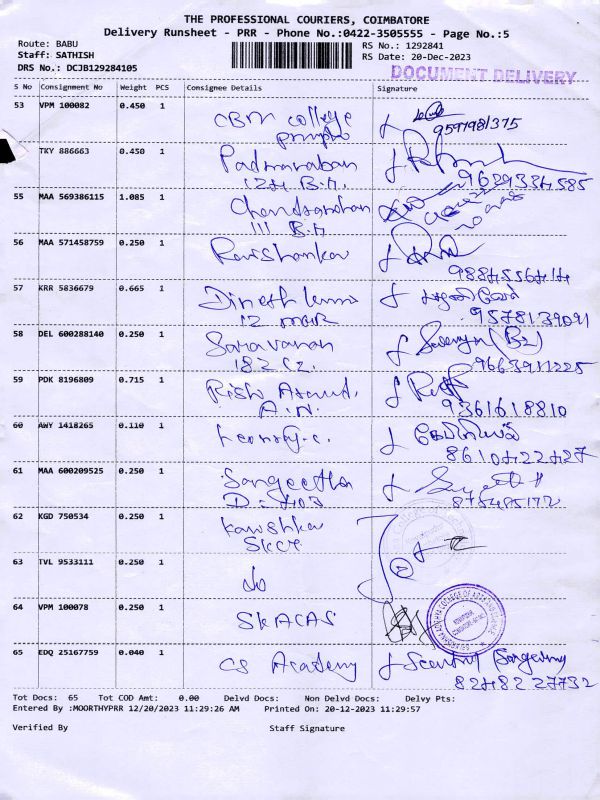 THE PROFESSIONAL COURIERS, COIMBATORE
Delivery Runsheet - PRR - Phone No.:0422-3505555 - Page No.:5
Route: BABU
Staff: SATHISH
DRS No.: DCJB129284105
RS No.: 1292841
RS Date: 20-Dec-2023
DOCUMENT DELIVERY
S No Consignment No Weight PCS Consignee Details Signature
53 VPM 100082 0.450 1 CBM College
9597981375
TKY 886663 0.450 1 Padmanaban
124 B.A.
9629334585
55 MAA 569386115 1.085 1 Chandramohan
111 B.A
56 MAA 571458759 0.250 1 Ravishankar
9884556414
57 KRR 5836679 0.665 1 Dinesh
12
9578139091
58 DEL 600288140 0.250 1 Saravanan
182 C2.
9663911225
59 PDK 8196809 0.715 1 Rish Anand.
A.N.
9361618810
60 AWY 1418265 0.110 1
8610422427
61 MAA 600209525 0.250 1 Sangeetha
D-403
875485172
62 KGD 750534 0.250 1 Kanishka
SKCT
63 TVL 9533111 0.250 1 do
64 VPM 100078 0.250 1 SKACAS
65 EDQ 25167759 0.040 1 CS Academy
8248227732
Tot Docs: 65 Tot COD Amt: 0.00 Delvd Docs: Non Delvd Docs: Delvy Pts:
Entered By :MOORTHYPRR 12/20/2023 11:29:26 AM Printed On: 20-12-2023 11:29:57
Verified By Staff Signature